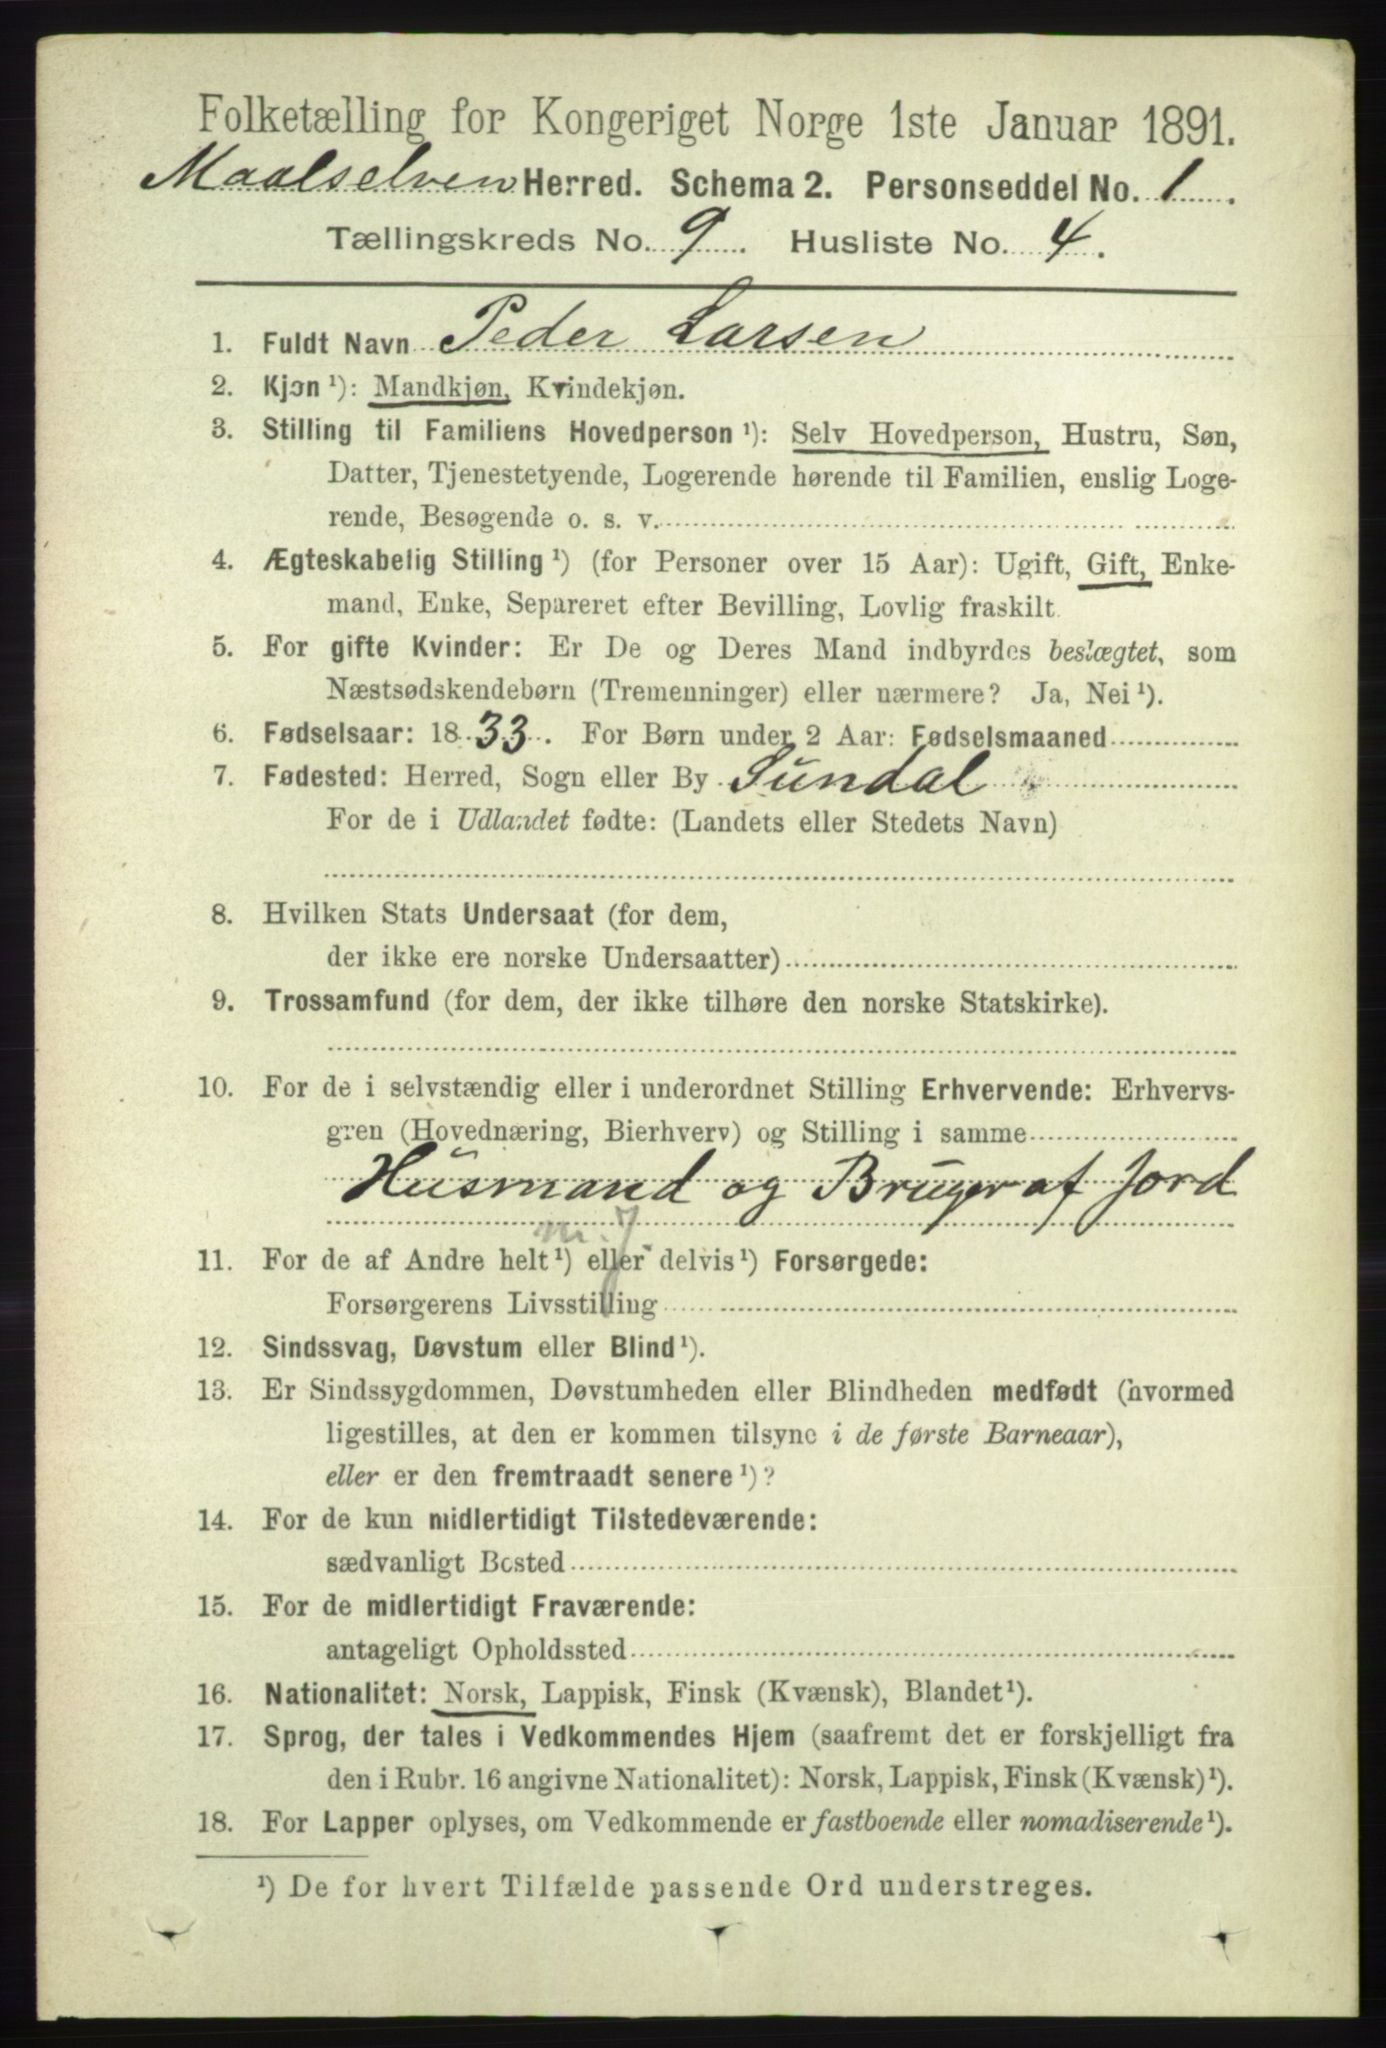 Folketælling for Kongeriget Norge 1ste Januar 1891.
Maalselven Herred. Schema 2. Personseddel No. 1.
Tællingskreds No. 9. Husliste No. 4.
1. Fuldt Navn Peder Larsen
2. Kjøn ¹): Mandkjøn, Kvindekjøn.
3. Stilling til Familiens Hovedperson ¹): Selv Hovedperson, Hustru, Søn,
Datter, Tjenestetyende, Logerende hørende til Familien, enslig Loge-
rende, Besøgende o. s. v.
4. Ægteskabelig Stilling ¹) (for Personer over 15 Aar): Ugift, Gift, Enke-
mand, Enke, Separeret efter Bevilling, Lovlig fraskilt.
5. For gifte Kvinder: Er De og Deres Mand indbyrdes beslægtet, som
Næstsødskendebørn (Tremenninger) eller nærmere? Ja, Nei ¹).
6. Fødselsaar: 1833. For Børn under 2 Aar: Fødselsmaaned
7. Fødested: Herred, Sogn eller By Sundal
For de i Udlandet fødte: (Landets eller Stedets Navn)
8. Hvilken Stats Undersaat (for dem,
der ikke ere norske Undersaatter)
9. Trossamfund (for dem, der ikke tilhøre den norske Statskirke).
10. For de i selvstændig eller i underordnet Stilling Erhvervende: Erhvervs-
gren (Hovednæring, Bierhverv) og Stilling i samme
Husmand og Bruger af Jord
m. J
11. For de af Andre helt ¹) eller delvis ¹) Forsørgede:
Forsørgerens Livsstilling
12. Sindssvag, Døvstum eller Blind ¹).
13. Er Sindssygdommen, Døvstumheden eller Blindheden medfødt (hvormed
ligestilles, at den er kommen tilsync i de første Barneaar),
eller er den fremtraadt senere ¹)?
14. For de kun midlertidigt Tilstedeværende:
sædvanligt Bosted
15. For de midlertidigt Fraværende:
antageligt Opholdssted
16. Nationalitet: Norsk, Lappisk, Finsk (Kvænsk), Blandet ¹).
17. Sprog, der tales i Vedkommendes Hjem (saafremt det er forskjelligt fra
den i Rubr. 16 angivne Nationalitet): Norsk, Lappisk, Finsk (Kvænsk) ¹).
18. For Lapper oplyses, om Vedkommende er fastboende eller nomadiserende ¹).
¹) De for hvert Tilfælde passende Ord understreges.